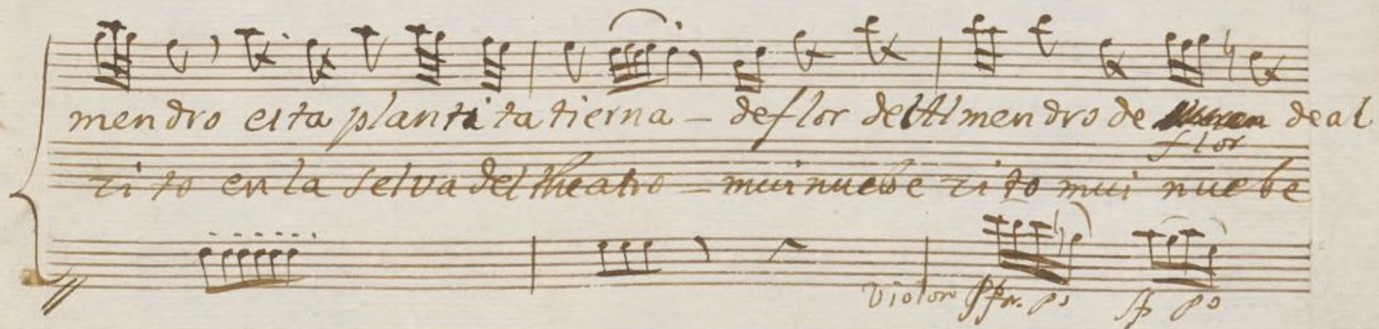 men dro esta plantita tierna - de flor del Almendro de deal
flor
zito en la selva del theatro - mui nuebe zito mui nuebe
violon po po